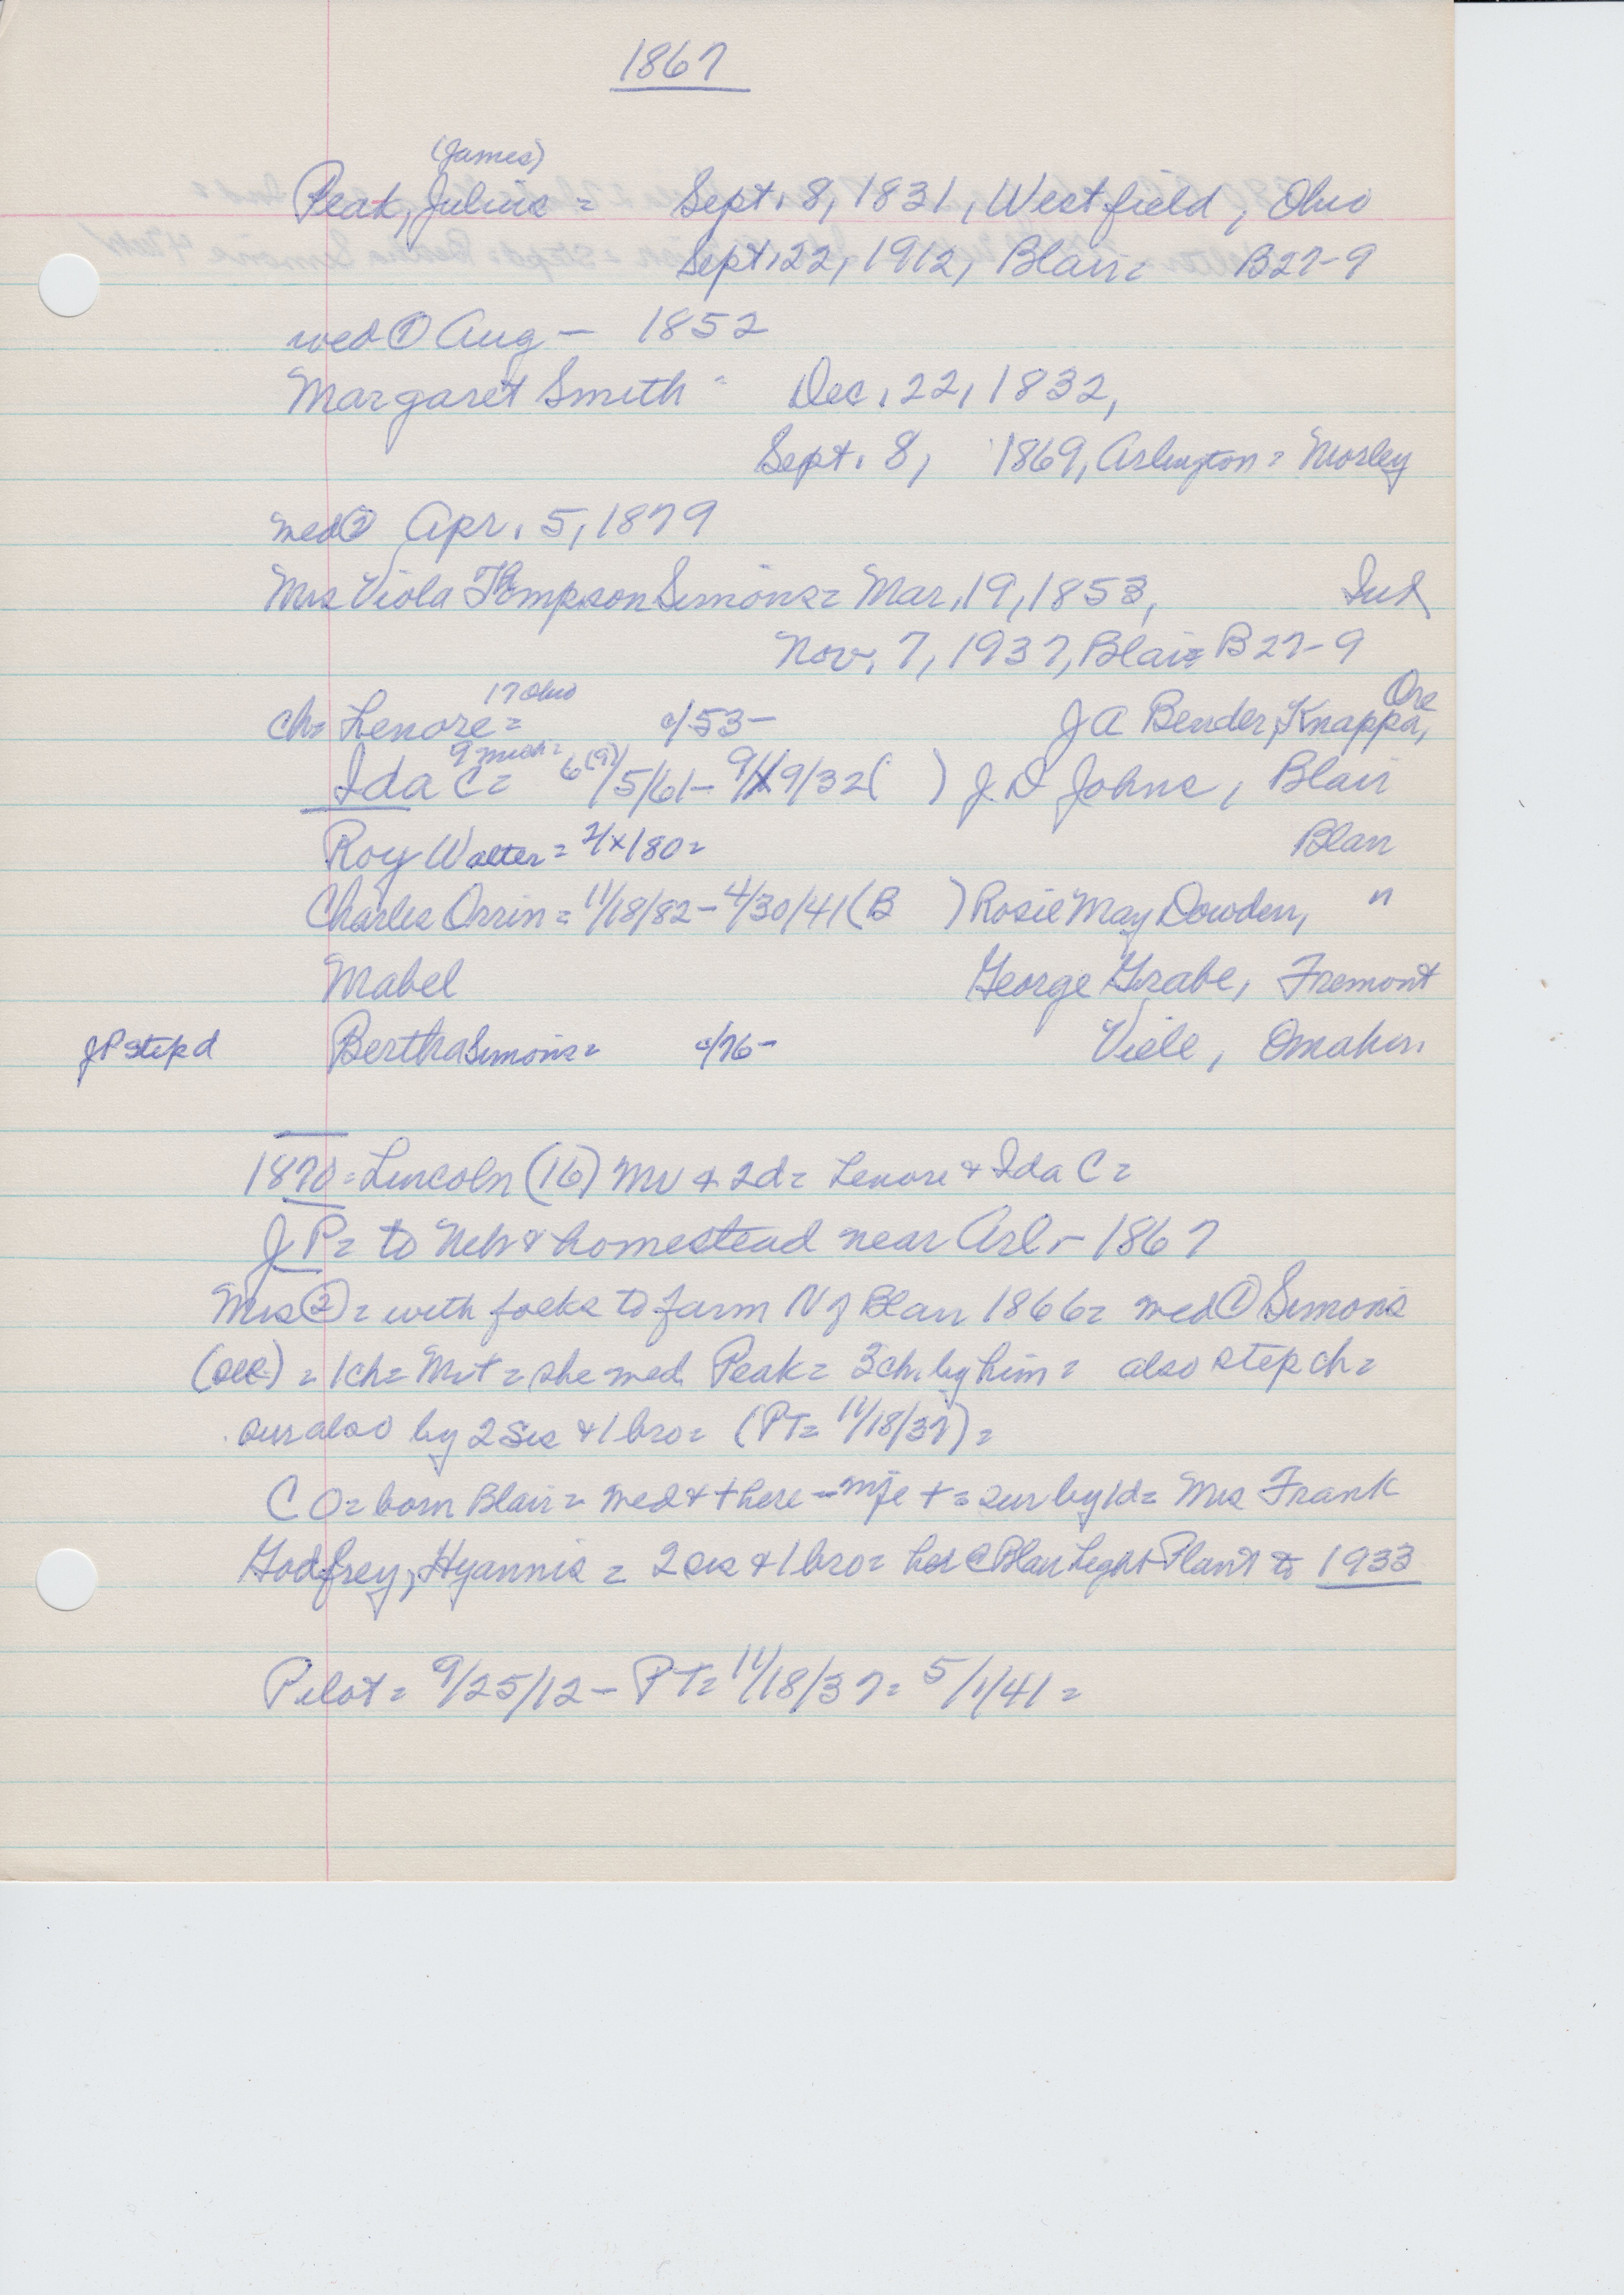 1867
(James)
Peak, Julius = Sept. 8, 1831, Westfield, Ohio
Sept. 22, 1912, Blair = B27-9
wed ① Aug - 1852
Margaret Smith = Dec. 22, 1832,
Sept. 8, 1869, Arlington = Mosley
wed ② Apr. 5, 1879
Mrs Viola Thompson Simons = Mar. 19, 1853, Ind
Nov. 7, 1937, Blair = B27-9
17 Ohio Ore
ch = Lenore = c/53- J A Bender, Knappa,
9 Mich =
Ida C = 6(9)/5/61-9/19/32 ( ) J. D Johns, Blair
Roy Walter = 2/x/80 = Blair
Charles Orrin = 11/18/82-4/30/41 (B ) Rosie May Dowden, "
Mabel George Grabe, Fremont
JP step d Bertha Simons = c/76- Viele, Omaha
1870 = Lincoln (16) mv + 2d = Lenore + Ida C =
J P = to Neb + homestead near Arl - 1867
Mrs ② = with folks to farm N of Blair 1866 = wed ① Simons
(dec) = 1ch = = she wed Peak = 3ch. by him = also step ch =
sur also by 2 sis + 1 bro = (PT = 11/18/37) =
C O = born Blair = wed + there - = sur by 1d = Mrs Frank
Godfrey, Hyannis = 2 sis + 1 bro = @ Blair Light Plant to 1933
Pilot = 9/25/12 - PT = 11/18/37 = 5/1/41 =